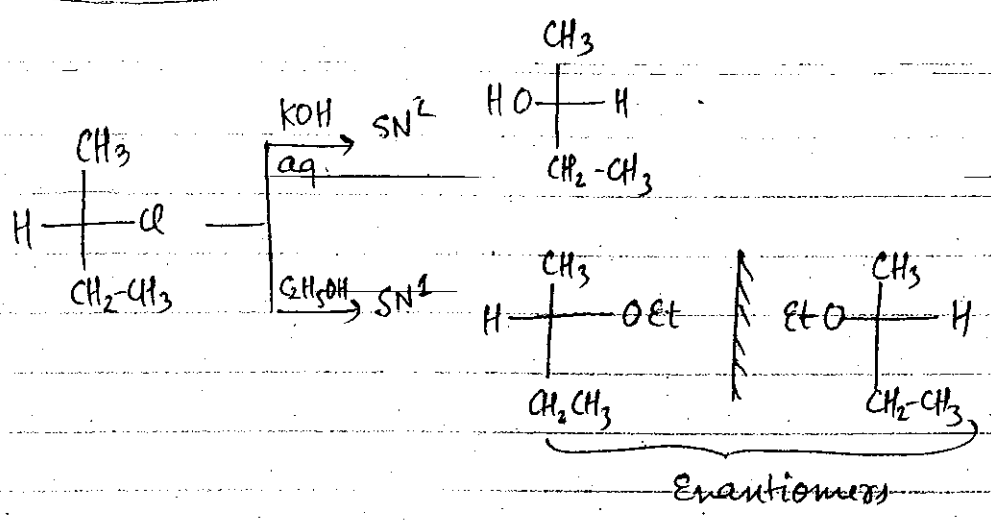 CH3
HO H
CH2-CH3
KOH SN2
aq.
CH3
H Cl
CH2-CH3
C2H5OH SN1
CH3
H OEt
CH2CH3
CH3
EtO H
CH2-CH3
Enantiomers